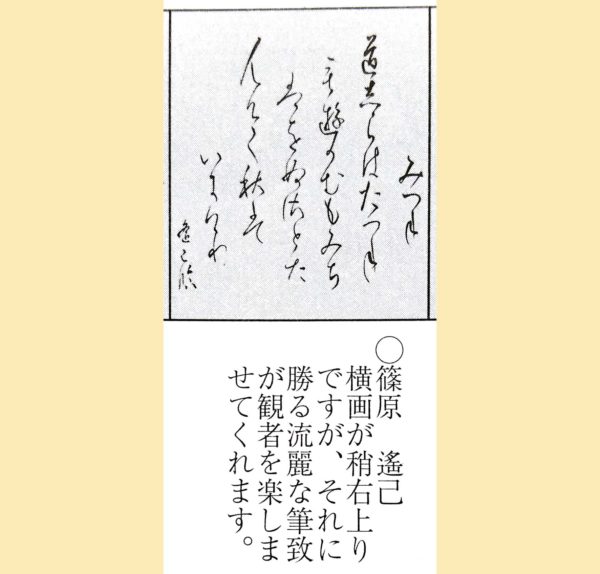 みつね
道しらはたつね
も遊かむもみち
はをぬさとた
むけて秋は
いにけり
遙己臨
○篠原 遙己
横画が稍右上り
ですが、それに
勝る流麗な筆致
が観者を楽しま
せてくれます。